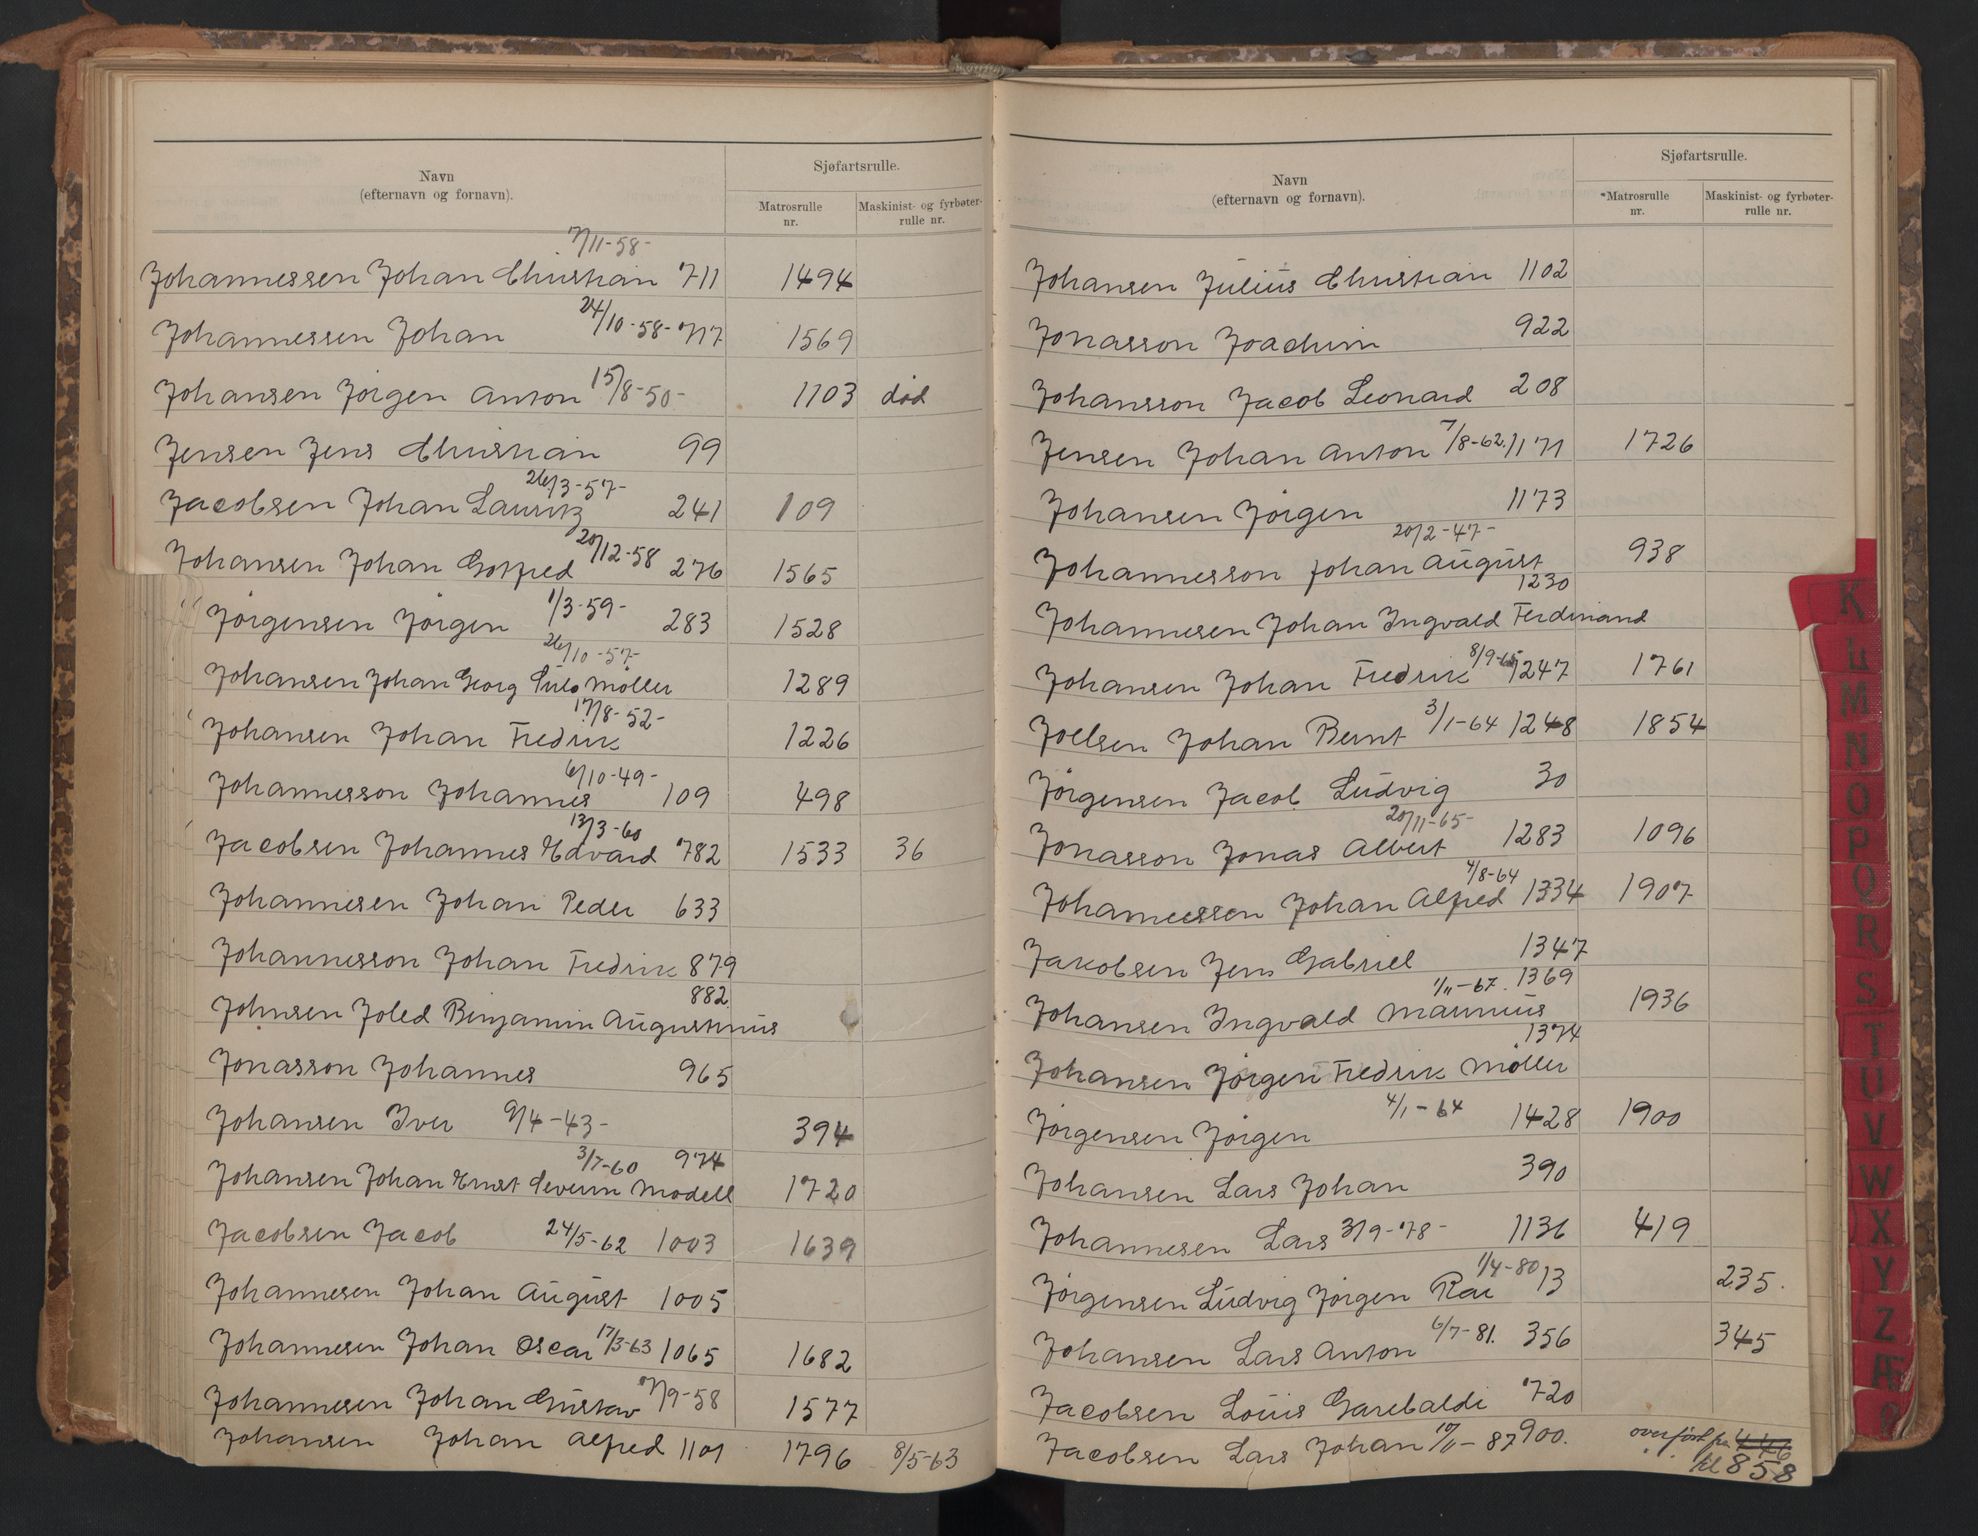 Navn
(efternavn og fornavn).
Sjøfartsrulle.
Matrosrulle
nr.
Maskinist- og fyrbøter-
rulle nr.
7/11-58-
Johannessen Johan Christian 711 1494
24/10-58-
Johannessen Johan 717 1569
Johansen Jørgen Anton 15/8-50- 1103 død
Jensen Jens Christian 99
26/3-57-
Jacobsen Johan Lauritz 241 109
20/12-58
Johansen Johan Gotfred 276 1565
Jørgensen Jørgen 1/3-59- 283 1528
26/10-57-
Johansen Johan Georg Møller 1289
17/8-52-
Johansen Johan Fredrik 1226
6/10-49-
Johannesson Johannes 109 498
13/3-60
Jacobsen Johannes Edvard 782 1533 36
Johannesen Johan Peder 633
Johannesson Johan Fredrik 879
882
Johnsen Joled Benjamin Augustinus
Jonasson Johannes 965
Johansen Iver 9/4-43- 394
3/7-60 974
Johansen Johan Ernst Severin Modell 1720
Jacobsen Jacob 24/5-62 1003 1639
Johannesen Johan August 1005
Johannesen Johan Oscar 17/3-63 1065 1682
Johannesen Johan Gustav 7/9-58 1577
Johansen Johan Alfred 1101 1796 8/5-63
Navn
(efternavn og fornavn).
Sjøfartsrulle.
Matrosrulle
nr.
Maskinist- og fyrbøter-
rulle nr.
Johansen Julius Christian 1102
Jonasson Joachim 922
Johansson Jacob Leonard 208
Jensen Johan Anton 7/8-62. 1171 1726
Johansen Jørgen 1173
20/2-47-
Johannesson Johan August 938
1230
Johannesen Johan Ingvald Ferdinand
Johansen Johan Fredrik 8/9-65 1247 1761
Joelsen Johan Bernt 3/1-64 1248 1854
Jørgensen Jacob Ludvig 30
20/11-65-
Jonasson Jonas Albert 1283 1096
4/8-64
Johannessen Johan Alfred 1334 1907
Jakobsen Jens Gabriel 1347
1/11-67. 1369
Johansen Ingvald Marinius 1936
1374
Johansen Jørgen Fredrik Møller
Jørgensen Jørgen 4/1-64 1428 1900
Johansen Lars Johan 390
Johannesen Lars 3/9-78- 1136 419
Jørgensen Ludvig Jørgen Rae 1/4-80 13 235.
Johansen Lars Anton 6/7-81. 356 345
Jacobsen Louis Garibaldi 720
Jacobsen Lars Johan 10/11-87 900. overført fra 446
til 858
K
L
M
N
O
P
Q
R
S
T
U
V
W
X
Y
Z
Æ
Ø